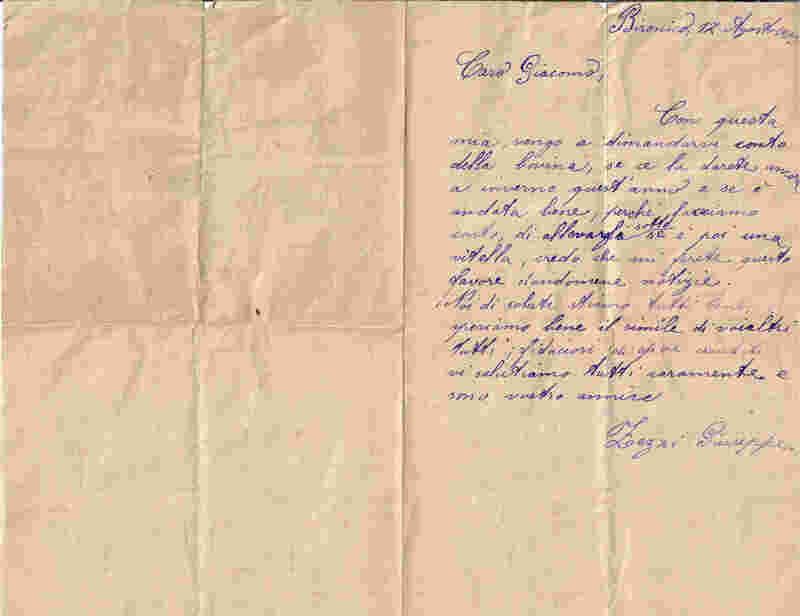 Bironico, 12 Agosto
Caro Giacomo,
Con questa
mia, vengo a dimandarvi conto
della bovina, se ce la darete ancor
a inverno quest'anno e se è
andata bene, perchè facciamo
conto, di allevargli sotto se è poi una
vitella, credo che mi farete questo
favore dandomene notizie.
Noi di salute stiamo tutti bene,
speriamo bene il simile di voialtri
tutti, fiduciosi
vi salutiamo tutti caramente e
sono vostro amico
Giuseppe